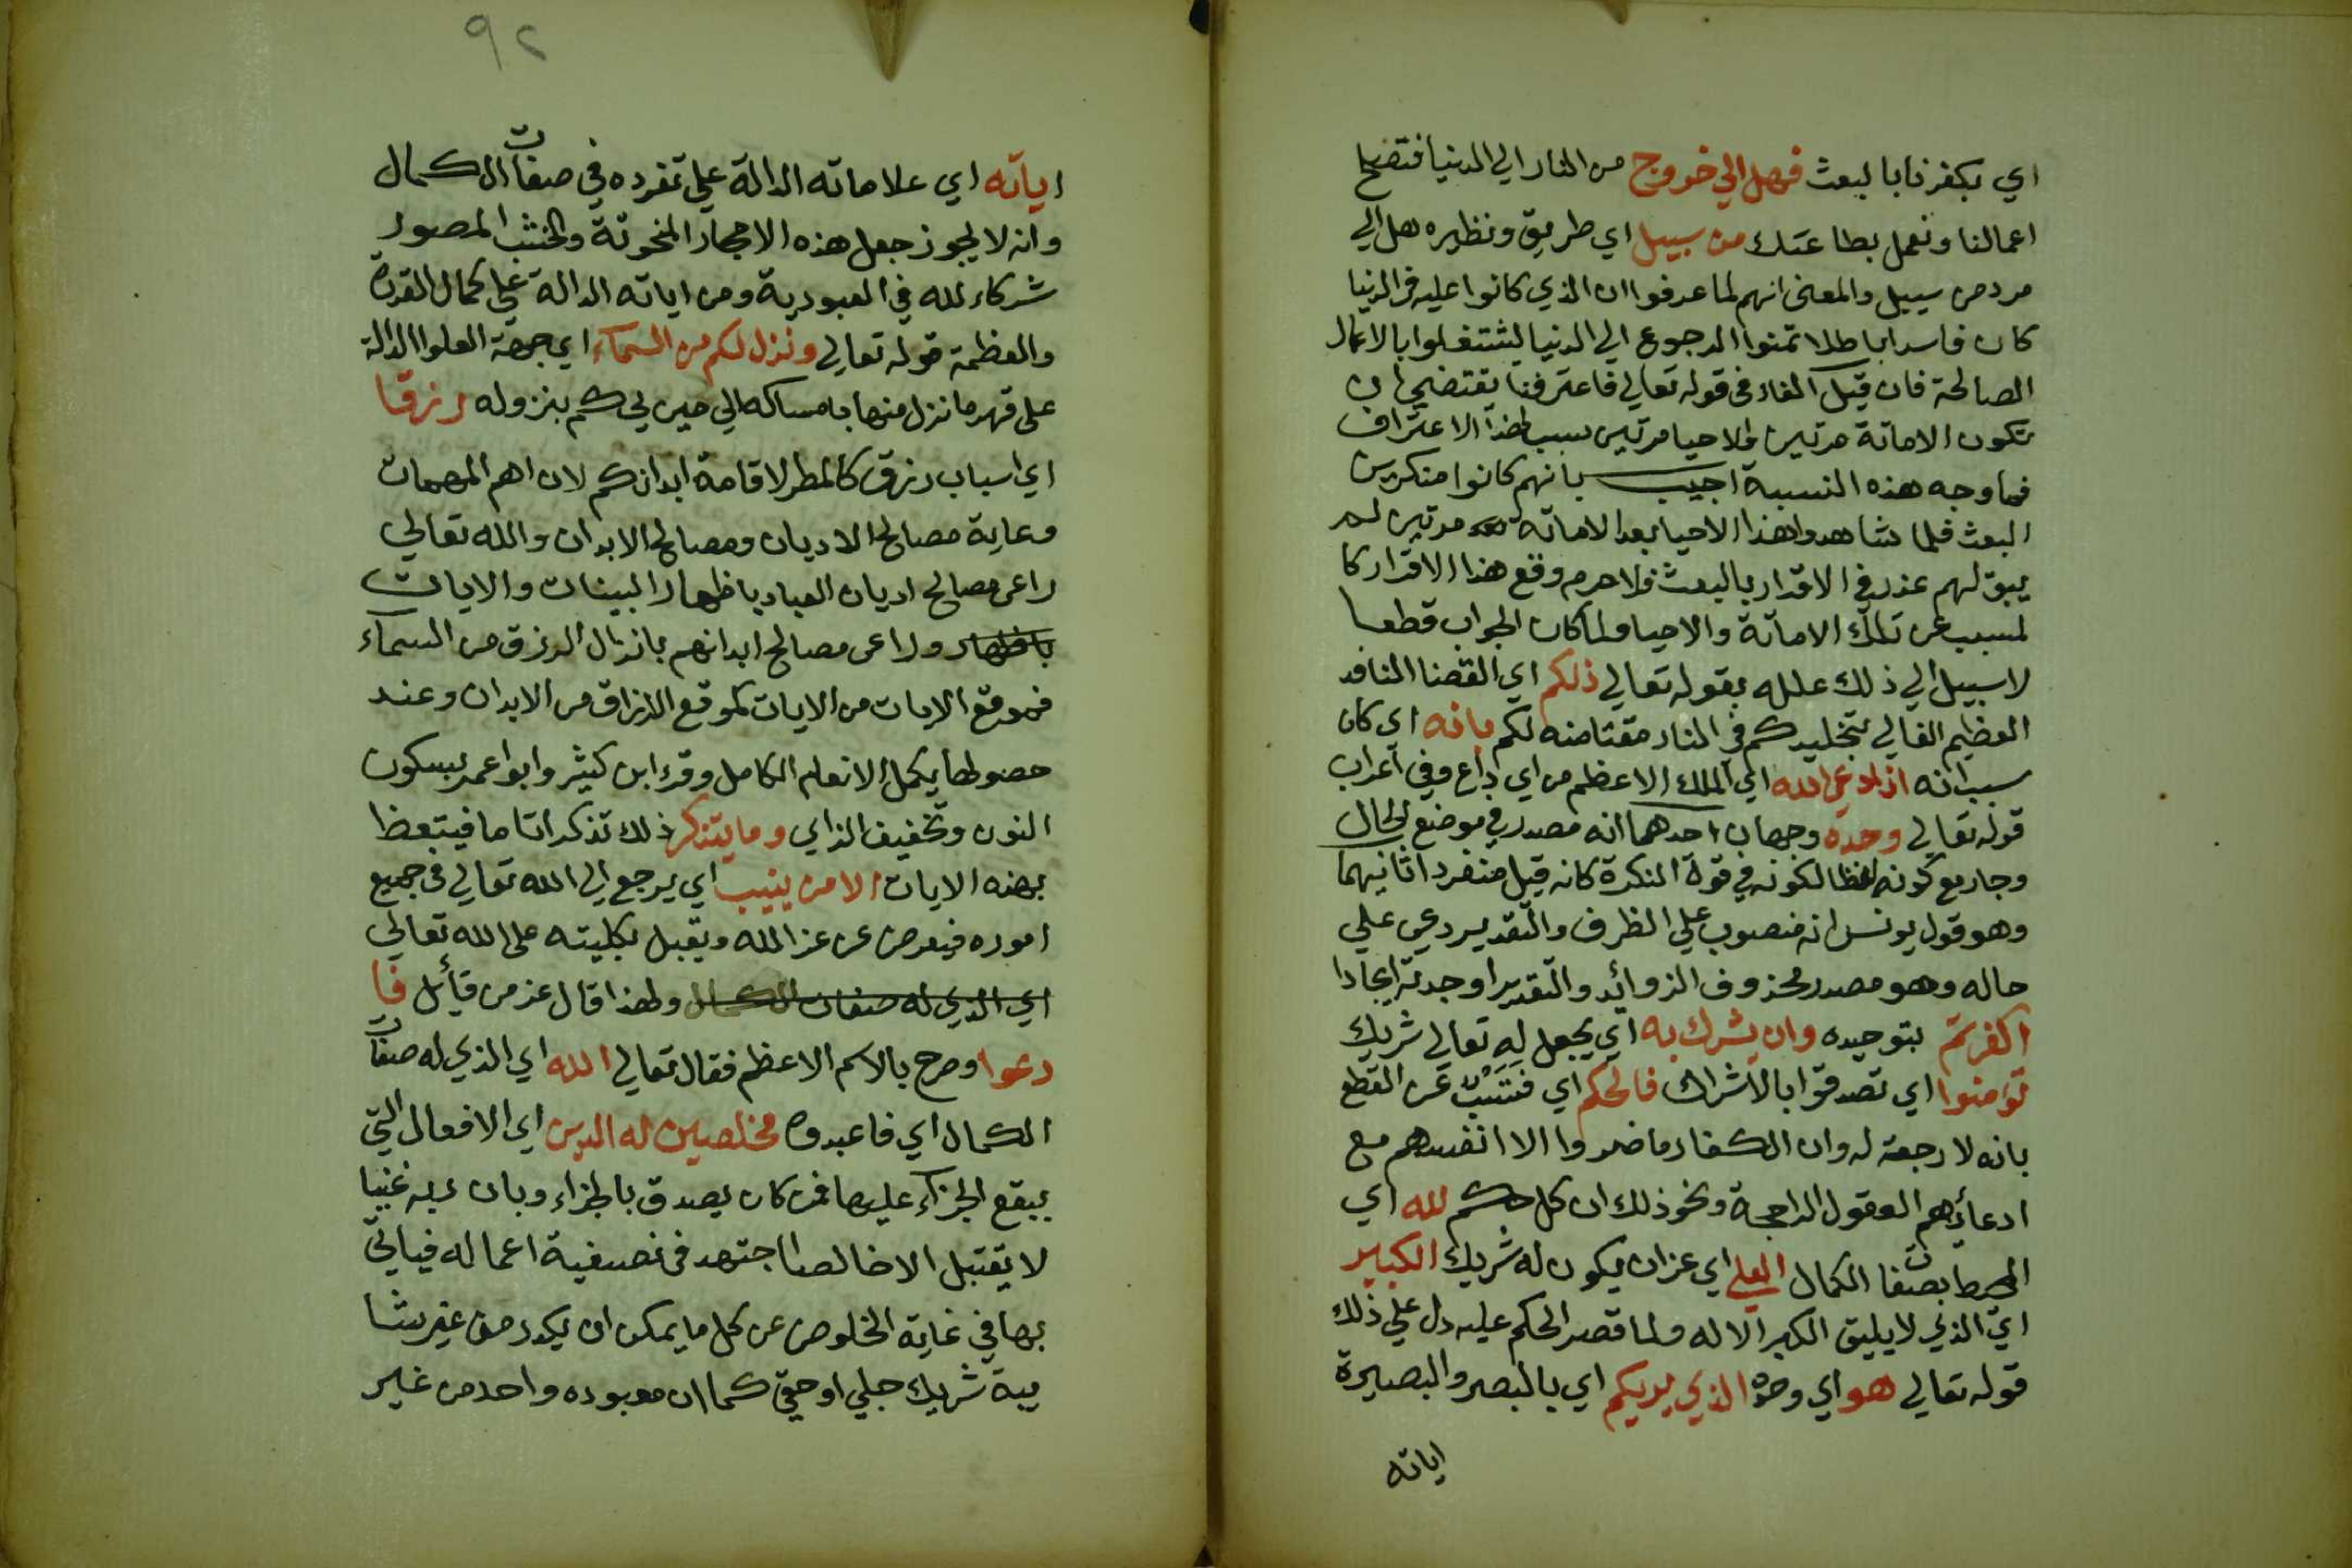 اي بكفرنا بالبعث فهل الي خروج من النار الي الدنيا فتصلح
اعمالنا ونعمل بطاعتك من سبيل اي طريق ونظيره هل الي
مرد من سبيل والمعنى انهم لما عرفوا ان الذي كانوا عليه في الدنيا
كان فاسدا باطلا تمنوا الرجوع الي الدنيا ليشتغلوا بالاعمال
الصالحة فان قيل الفاء في قوله تعالي فاعترفنا يقتضي ان
تكون الاماتة مرتين والاحيا مرتين سبب لهذا الاعتراف
فما وجه هذه النسبية اجيب بانهم كانوا منكرين
البعث فلما شاهدوا هذا الاحيا بعد الاماتة مرتين لم
يبق لهم عذر في الاقرار بالبعث فلاجرم وقع هذا الاقرار كا
لمسبب عن تلك الاماتة والاحيا ولما كان الجواب قطعا
لا سبيل الي ذلك علله بقوله تعالي ذلكم اي القضا النافد
العظيم العالي بتخليدكم في النار مقتا منه لكم بانه اي كان
سبب انه اذا دعي الله اي الملك الاعظم من اي داع وفي اعراب
قوله تعالي وحده وجهان احدهما انه مصدر في موضع الحال
وجاز مع كونه لفظا لكونه في قوة النكرة كانه قيل منفردا ثانيهما
وهو قول يونس انه منصوب علي الظرف والتقدير دعي علي
حاله وهو مصدر محذوف الزوائد والتقدير اوجدته ايجادا
اكفرتم بتوحيده وان يشرك به اي يجعل له تعالي شريك
تؤمنوا اي تصدقوا بالاشراك فالحكم اي فتسبب عن القطع
بانه لا رجعة له وان الكفار ما ضروا الا انفسهم مع
ادعائهم العقول الراجحة ونحو ذلك ان كل حكم لله اي
المحيط بصفات الكمال العلي اي عن ان يكون له شريك الكبير
اي الذي لا يليق الكبر الا له ولما قصر الحكم عليه دل علي ذلك
قوله تعالي هو اي وحده الذي يريكم اي بالبصر والبصيرة
اياته
٩٢
اياته اي علاماته الدالة علي تفرده في صفات الكمال
وانه لا يجوز جعل هذه الاحجار المنحوتة والخشب المصور
شركاء لله في العبودية ومن اياته الدالة علي كمال القدرة
والعظمة قوله تعالي وينزل لكم من السماء اي جهة العلوا الدالة
على قهر ما نزل منها بامساكه الي حين يحكم بنزوله رزقا
اي اسباب رزق كالمطر لاقامة ابدانكم لان اهم المهمات
رعاية مصالح الاديان ومصالح الابدان والله تعالي
راعى مصالح اديان العباد باظهار البينات والايات
باظهار وراعى مصالح ابدانهم بانزال الرزق من السماء
فموقع الايات من الاديان كموقع الارزاق من الابدان وعند
حصولهما يكمل الانعام الكامل وقرء ابن كثير وابوا عمر بسكون
النون وتخفيف الزاي وما يتذكر ذلك تذكرا تاما فيتعظ
بهذه الايات الا من ينيب اي يرجع الي الله تعالي في جميع
اموره فيعرض عن غير الله ويقبل بكليته على الله تعالي
اي الذي له صفات الكمال ولهذا قال عز من قائل فا
دعوا وصرح بالاسم الاعظم فقال تعالي الله اي الذي له صفات
الكمال اي فاعبدوه مخلصين له الدين اي الافعال التي
يبقع الجزاء عليها فمن كان يصدق بالجزاء وبان ربه غنيا
لا يقتبل الا خالصا اجتهد في تصفية اعماله فياتي
بها في غاية الخلوص عن كل ما يمكن ان يكدر من غير شا
يبة شريك جلي او خفي كما ان معبوده واحد من غير